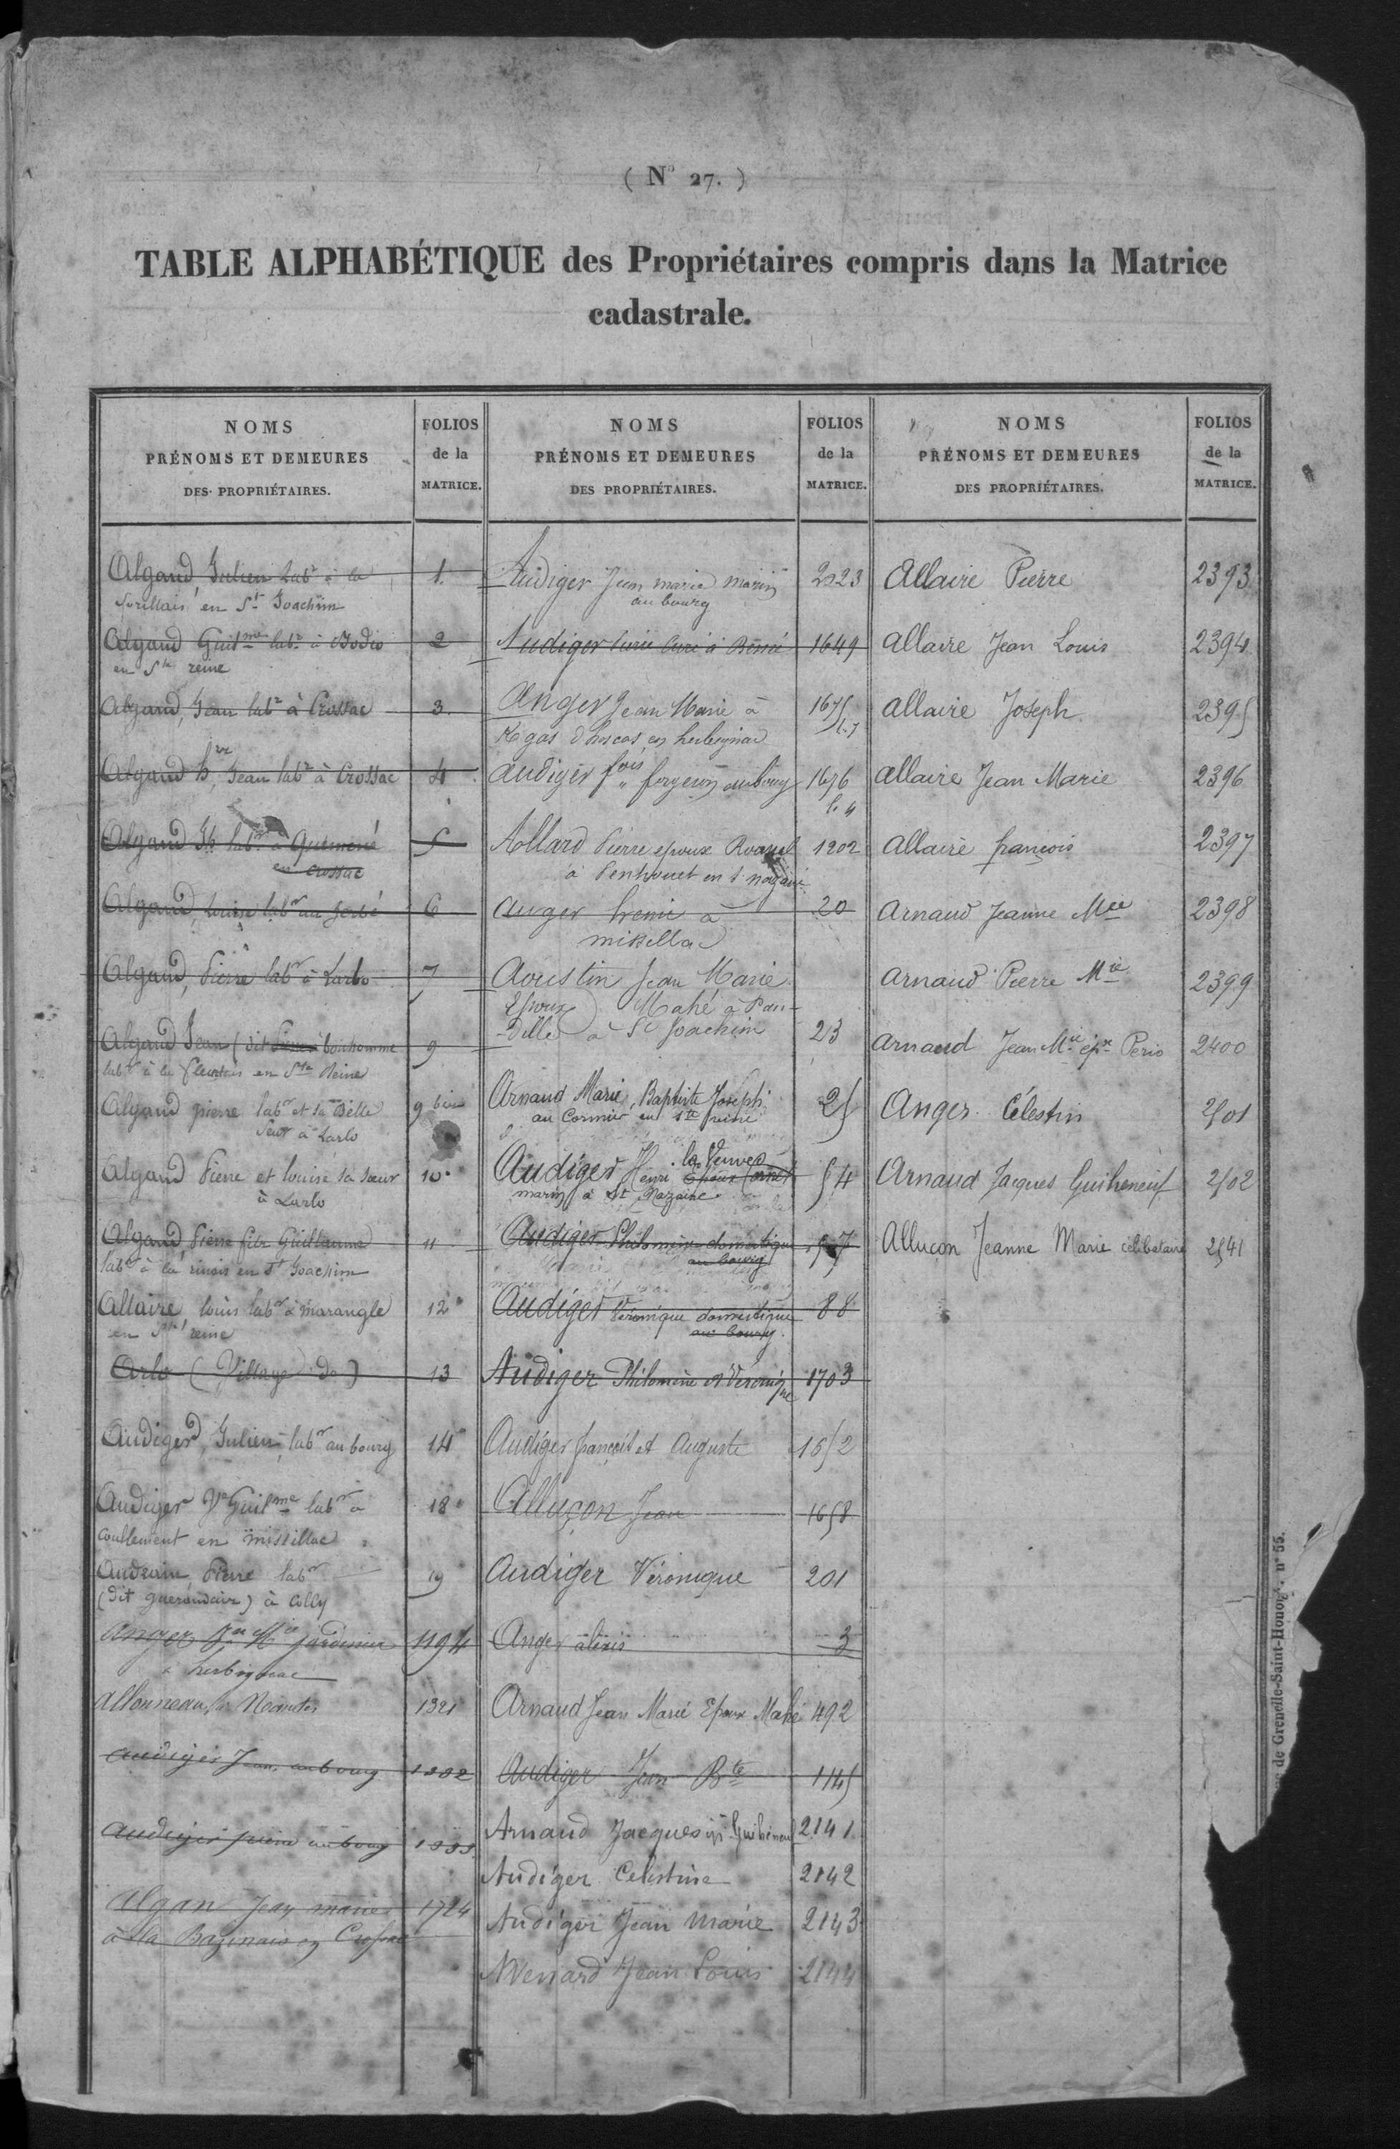 ( N° 27. )
TABLE ALPHABÉTIQUE des Propriétaires compris dans la Matrice
cadastrale.
NOMS
PRÉNOMS ET DEMEURES
DES PROPRIÉTAIRES.
FOLIOS
de la
MATRICE.
Algand, Julien labr à la 1.
en St Joachim
Algand Guilme labr à Bodio 2
en Ste reine
Algand, Jean labr à Crossac 3
Algand Jean labr à Crossac 4
Algand labr à Quémené 5
en Crossac
Algand, Louise labr au 6
Algand, Pierre labr à Larlo 7
Algand Jean (dit bonhomme 9
labr à la en Ste Reine
Algand pierre labr et sa Belle 9 bis
Seur à Larlo
Algand Pierre et Louise sa sœur 10
à Larlo
Algand Pierre fils Guillaume 11
labr à la en St Joachim
Allaire Louis labr à marangle 12
en Ste reine
Arlo (Village de) 13
Audiger, Julien, labr au bourg 14
Audiger Ve Guilme labr à 18
en missillac
Audrain Pierre labr 19
(dit ) à Colly
Anger jardinier 1194
à herbignac
Allonneau, à Nantes 1321
Audiger Jean, au bourg 1332
Audiger pierre au bourg 1333
Algan Jean marie 1724
à la en Crossac
NOMS
PRÉNOMS ET DEMEURES
DES PROPRIÉTAIRES.
FOLIOS
de la
MATRICE.
Audiger Jean marie marin 2223
au bourg
Audiger Curé à 1649
Anger Jean Marie à 1675
en herbignac
Audiger fois forgeron au bourg 1676
Allard Pierre epoux 1202
à Penhouet en St nazaire
Auger à 20
missillac
Aoustin Jean Marie
Epoux Mahé à Pan-
Dille à St Joachim 23
Arnaud Marie, Baptiste Joseph 25
au Cormier en Ste reine
Audiger Henri la Veuve 54
marin à St Nazaire
Audiger Philomène domestique 57
au bourg
Audiger Véronique domestique 88
au bourg
Audiger Philomène et Véronique 1703
Audiger françois et Auguste 1652
Alluçon Jean 1658
Audiger Véronique 201
Anger alexis 3
Arnaud Jean Marie Epoux Mahé 492
Audiger Jean Bte 1145
Arnaud Jacques Guihéneuf 2141
Audiger Celestine 2142
Audiger Jean Marie 2143
Jean Louis 2144
NOMS
PRÉNOMS ET DEMEURES
DES PROPRIÉTAIRES.
FOLIOS
de la
MATRICE.
Allaire Pierre 2393
Allaire Jean Louis 2394
Allaire Joseph 2395
Allaire Jean Marie 2396
Allaire françois 2397
Arnaud Jeanne Mie 2398
Arnaud Pierre Mie 2399
Arnaud Jean Mie épx Perio 2400
Anger Célestin 2501
Arnaud Jacques Guiheneuf 2502
Alluçon Jeanne Marie célibataire 2541
de Grenelle-Saint-Honoré, n° 55.